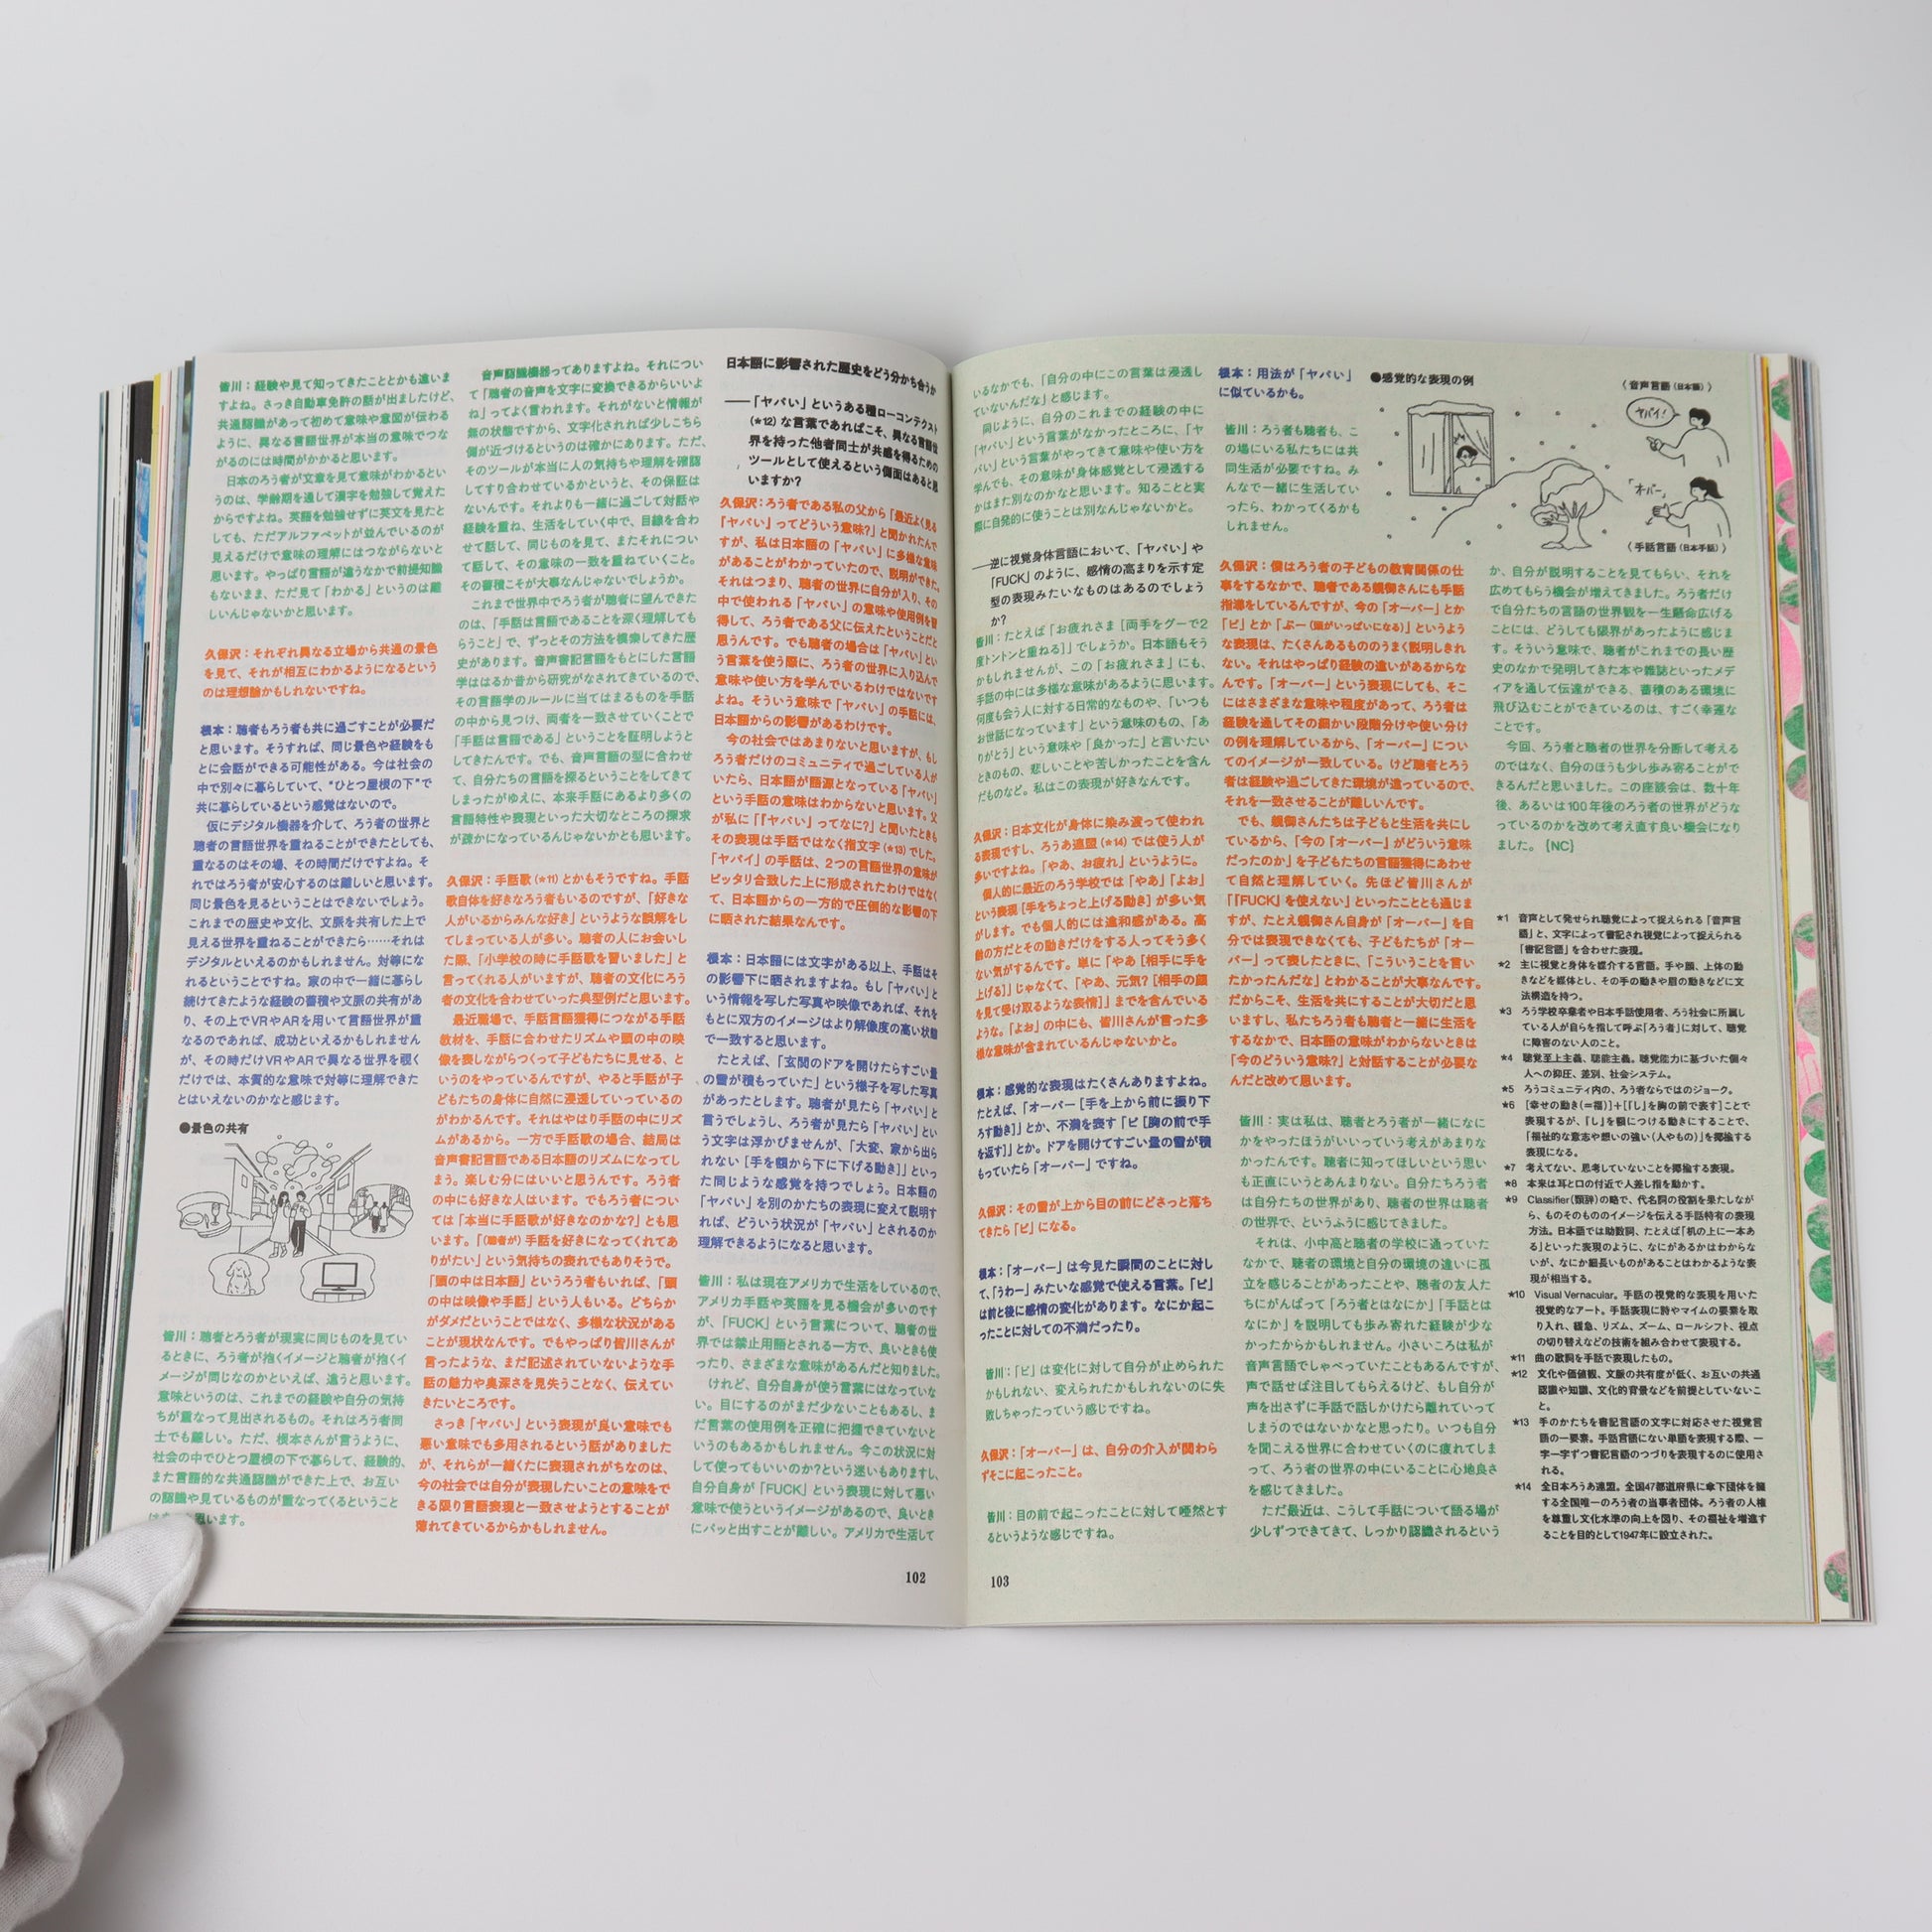 皆川：経験や見て知ってきたこととかも違いま
すよね。さっき自動車免許の話が出ましたけど、
共通認識があって初めて意味や意図が伝わる
ように、異なる言語世界が本当の意味でつな
がるのには時間がかかると思います。
日本のろう者が文章を見て意味がわかるとい
うのは、学齢期を通して漢字を勉強して覚えた
からですよね。英語を勉強せずに英文を見たと
しても、ただアルファベットが並んでいるのが
見えるだけで意味の理解にはつながらないと
思います。やっぱり言語が違うなかで前提知識
もないまま、ただ見て「わかる」というのは難
しいんじゃないかと思います。
久保沢：それぞれ異なる立場から共通の景色
を見て、それが相互にわかるようになるという
のは理想論かもしれないですね。
根本：聴者もろう者も共に過ごすことが必要だ
と思います。そうすれば、同じ景色や経験をも
とに会話ができる可能性がある。今は社会の
中で別々に暮らしていて、“ひとつ屋根の下”で
共に暮らしているという感覚はないので。
仮にデジタル機器を介して、ろう者の世界と
聴者の言語世界を重ねることができたとしても、
重なるのはその場、その時間だけですよね。そ
れではろう者が安心するのは難しいと思います。
同じ景色を見るということはできないでしょう。
これまでの歴史や文化、文脈を共有した上で
見える世界を重ねることができたら……それは
デジタルといえるのかもしれません。対等にな
れるということですね。家の中で一緒に暮らし
続けてきたような経験の蓄積や文脈の共有があ
り、その上でVRやARを用いて言語世界が重
なるのであれば、成功といえるかもしれません
が、その時だけVRやARで異なる世界を覗く
だけでは、本質的な意味で対等に理解できた
とはいえないのかなと感じます。
●景色の共有
皆川：聴者とろう者が現実に同じものを見てい
るときに、ろう者が抱くイメージと聴者が抱くイ
メージが同じなのかといえば、違うと思います。
意味というのは、これまでの経験や自分の気持
ちが重なって見出されるもの。それはろう者同
士でも難しい。ただ、根本さんが言うように、
社会の中でひとつ屋根の下で暮らして、経験的、
また言語的な共通認識ができた上で、お互い
の認識や見ているものが重なってくるということ
思います。
音声認識機器ってありますよね。それについ
て「聴者の音声を文字に変換できるからいいよ
ね」ってよく言われます。それがないと情報が
無の状態ですから、文字化されれば少しこちら
側が近づけるというのは確かにあります。ただ、
そのツールが本当に人の気持ちや理解を確認
してすり合わせているかというと、その保証は
ないんです。それよりも一緒に過ごして対話や
経験を重ね、生活をしていく中で、目線を合わ
せて話して、同じものを見て、またそれについ
て話して、その意味の一致を重ねていくこと。
その蓄積こそが大事なんじゃないでしょうか。
これまで世界中でろう者が聴者に望んできた
のは、「手話は言語であることを深く理解しても
らうこと」で、ずっとその方法を模索してきた歴
史があります。音声書記言語をもとにした言語
学ははるか昔から研究がなされてきているので、
その言語学のルールに当てはまるものを手話
の中から見つけ、両者を一致させていくことで
「手話は言語である」ということを証明しようと
してきたんです。でも、音声言語の型に合わせ
て、自分たちの言語を探るということをしてきて
しまったがゆえに、本来手話にあるより多くの
言語特性や表現といった大切なところの探求
が疎かになっているんじゃないかとも思います。
久保沢：手話歌（★11）とかもそうですね。手話
歌自体を好きなろう者もいるのですが、「好きな
人がいるからみんな好き」というような誤解をし
てしまっている人が多い。聴者の人にお会いし
た際、「小学校の時に手話歌を習いました」と
言ってくれる人がいますが、聴者の文化にろう
者の文化を合わせていった典型例だと思います。
最近職場で、手話言語獲得につながる手話
教材を、手話に合わせたリズムや頭の中の映
像を表しながらつくって子どもたちに見せる、と
いうのをやっているんですが、やると手話が子
どもたちの身体に自然に浸透していっているの
がわかるんです。それはやはり手話の中にリズ
ムがあるから。一方で手話歌の場合、結局は
音声書記言語である日本語のリズムになってし
まう。楽しむ分にはいいと思うんです。ろう者
の中にも好きな人はいます。でもろう者につい
ては「本当に手話歌が好きなのかな？」とも思
います。「（聴者が）手話を好きになってくれてあ
りがたい」という気持ちの表れでもありそうで。
「頭の中は日本語」というろう者もいれば、「頭
の中は映像や手話」という人もいる。どちらか
がダメだということではなく、多様な状況がある
ことが現状なんです。でもやっぱり皆川さんが
言ったような、まだ記述されていないような手
話の魅力や奥深さを見失うことなく、伝えてい
きたいところです。
さっき「ヤバい」という表現が良い意味でも
悪い意味でも多用されるという話がありました
が、それらが一緒くたに表現されがちなのは、
今の社会では自分が表現したいことの意味をで
きる限り言語表現と一致させようとすることが
薄れてきているからかもしれません。
日本語に影響された歴史をどう分かち合うか
――「ヤバい」というある種ローコンテクスト
（★12）な言葉であればこそ、異なる言語世
界を持った他者同士が共感を得るための
ツールとして使えるという側面はあると思
いますか？
久保沢：ろう者である私の父から「最近よく見る
『ヤバい』ってどういう意味？」と聞かれたんで
すが、私は日本語の「ヤバい」に多様な意味
があることがわかっていたので、説明ができた。
それはつまり、聴者の世界に自分が入り、その
中で使われる「ヤバい」の意味や使用例を習
得して、ろう者である父に伝えたということだと
思うんです。でも聴者の場合は「ヤバい」とい
う言葉を使う際に、ろう者の世界に入り込んで
意味や使い方を学んでいるわけではないです
よね。そういう意味で「ヤバい」の手話には、
日本語からの影響があるわけです。
今の社会ではあまりないと思いますが、もし
ろう者だけのコミュニティで過ごしている人が
いたら、日本語が語源となっている「ヤバい」
という手話の意味はわからないと思います。父
が私に「『ヤバい』ってなに？」と聞いたときも
その表現は手話ではなく指文字（★13）でした。
「ヤバイ」の手話は、2つの言語世界の意味が
ピッタリ合致した上に形成されたわけではなく
て、日本語からの一方的で圧倒的な影響の下
に晒された結果なんです。
根本：日本語には文字がある以上、手話はそ
の影響下に晒されますよね。もし「ヤバい」と
いう情報を写した写真や映像であれば、それを
もとに双方のイメージはより解像度の高い状態
で一致すると思います。
たとえば、「玄関のドアを開けたらすごい量
の雪が積もっていた」という様子を写した写真
があったとします。聴者が見たら「ヤバい」と
言うでしょうし、ろう者が見たら「ヤバい」とい
う文字は浮かびませんが、「大変、家から出ら
れない［手を額から下に下げる動き］」といっ
た同じような感覚を持つでしょう。日本語の
「ヤバい」を別のかたちの表現に変えて説明す
れば、どういう状況が「ヤバい」とされるのか
理解できるようになると思います。
皆川：私は現在アメリカで生活をしているので、
アメリカ手話や英語を見る機会が多いのです
が、「FUCK」という言葉について、聴者の世
界では禁止用語とされる一方で、良いときも使
ったり、さまざまな意味があるんだと知りました。
けれど、自分自身が使う言葉にはなっていな
い。目にするのがまだ少ないこともあるし、ま
だ言葉の使用例を正確に把握できていないと
いうのもあるかもしれません。今この状況に対
して使ってもいいのか？という迷いもありますし、
自分自身が「FUCK」という表現に対して悪い
意味で使うというイメージがあるので、良いとき
にパッと出すことが難しい。アメリカで生活して
102
いるなかでも、「自分の中にこの言葉は浸透し
ていないんだな」と感じます。
同じように、自分のこれまでの経験の中に
「ヤバい」という言葉がなかったところに、「ヤ
バい」という言葉がやってきて意味や使い方を
学んでも、その意味が身体感覚として浸透する
かはまた別なのかなと思います。知ることと実
際に自発的に使うことは別なんじゃないかと。
――逆に視覚身体言語において、「ヤバい」や
「FUCK」のように、感情の高まりを示す定
型の表現みたいなものはあるのでしょう
か？
皆川：たとえば「お疲れさま［両手をグーで2
度トントンと重ねる］」でしょうか。日本語もそう
かもしれませんが、この「お疲れさま」にも、
手話の中には多様な意味があるように思います。
何度も会う人に対する日常的なものや、「いつも
お世話になっています」という意味のもの、「あ
りがとう」という意味や「良かった」と言いたい
ときのもの、悲しいことや苦しかったことを含ん
だものなど。私はこの表現が好きなんです。
久保沢：日本文化が身体に染み渡って使われ
る表現ですし、ろうあ連盟（★14）では使う人が
多いですよね。「やあ、お疲れ」というように。
個人的に最近のろう学校では「やあ」「よお」
という表現［手をちょっと上げる動き］が多い気
がします。でも個人的には違和感がある。高
齢の方だとその動きだけをする人ってそう多く
ない気がするんです。単に「やあ［相手に手を
上げる］」じゃなくて、「やあ、元気？［相手の顔
を見て受け取るような表情］」までを含んでいる
ような。「よお」の中にも、皆川さんが言った多
様な意味が含まれているんじゃないかと。
根本：感覚的な表現はたくさんありますよね。
たとえば、「オーバー［手を上から前に振り下
ろす動き］」とか、不満を表す「ピ［胸の前で手
を返す］」とか。ドアを開けてすごい量の雪が積
もっていたら「オーバー」ですね。
久保沢：その雪が上から目の前にどさっと落ち
てきたら「ピ」になる。
根本：「オーバー」は今見た瞬間のことに対し
て、「うわー」みたいな感覚で使える言葉。「ピ」
は前と後に感情の変化があります。なにか起こ
ったことに対しての不満だったり。
皆川：「ピ」は変化に対して自分が止められた
かもしれない、変えられたかもしれないのに失
敗しちゃったっていう感じですね。
久保沢：「オーバー」は、自分の介入が関わら
ずそこに起こったこと。
皆川：目の前で起こったことに対して唖然とす
るというような感じですね。
103
根本：用法が「ヤバい」
に似ているかも。
皆川：ろう者も聴者も、こ
の場にいる私たちには共
同生活が必要ですね。み
んなで一緒に生活してい
ったら、わかってくるかも
しれません。
●感覚的な表現の例
〈音声言語（日本語）〉
ヤバイ！
「オーバー」
〈手話言語（日本手話）〉
久保沢：僕はろう者の子どもの教育関係の仕
事をするなかで、聴者である親御さんにも手話
指導をしているんですが、今の「オーバー」とか
「ピ」とか「ぷー（頭がいっぱいになる）」というよう
な表現は、たくさんあるもののうまく説明しきれ
ない。それはやっぱり経験の違いがあるからな
んです。「オーバー」という表現にしても、そこ
にはさまざまな意味や程度があって、ろう者は
経験を通してその細かい段階分けや使い分け
の例を理解しているから、「オーバー」につい
てのイメージが一致している。けど聴者とろう
者は経験や過ごしてきた環境が違っているので、
それを一致させることが難しいんです。
でも、親御さんたちは子どもと生活を共にし
ているから、「今の『オーバー』がどういう意味
だったのか」を子どもたちの言語獲得にあわせ
て自然と理解していく。先ほど皆川さんが
「『FUCK』を使えない」といったことも通じま
すが、たとえ親御さん自身が「オーバー」を自
分では表現できなくても、子どもたちが「オー
バー」って表したときに、「こういうことを言い
たかったんだな」とわかることが大事なんです。
だからこそ、生活を共にすることが大切だと思
いますし、私たちろう者も聴者と一緒に生活を
するなかで、日本語の意味がわからないときは
「今のどういう意味？」と対話することが必要な
んだと改めて思います。
皆川：実は私は、聴者とろう者が一緒になに
かをやったほうがいいっていう考えがあまりな
かったんです。聴者に知ってほしいという思い
も正直にいうとあんまりない。自分たちろう者
は自分たちの世界があり、聴者の世界は聴者
の世界で、というふうに感じてきました。
それは、小中高と聴者の学校に通っていた
なかで、聴者の環境と自分の環境の違いに孤
立を感じることがあったことや、聴者の友人た
ちにがんばって「ろう者とはなにか」「手話とは
なにか」を説明しても歩み寄れた経験が少な
かったからかもしれません。小さいころは私が
音声言語でしゃべっていたこともあるんですが、
声で話せば注目してもらえるけど、もし自分が
声を出さずに手話で話しかけたら離れていって
しまうのではないかなと思ったり。いつも自分
を聞こえる世界に合わせていくのに疲れてしま
って、ろう者の世界の中にいることに心地良さ
を感じてきました。
ただ最近は、こうして手話について語る場が
少しずつできてきて、しっかり認識されるという
か、自分が説明することを見てもらい、それを
広めてもらう機会が増えてきました。ろう者だけ
で自分たちの言語の世界観を一生懸命広げる
ことには、どうしても限界があったように感じま
す。そういう意味で、聴者がこれまでの長い歴
史のなかで発明してきた本や雑誌といったメデ
ィアを通して伝達ができる、蓄積のある環境に
飛び込むことができているのは、すごく幸運な
ことです。
今回、ろう者と聴者の世界を分断して考える
のではなく、自分のほうも少し歩み寄ることがで
きるんだと思いました。この座談会は、数十年
後、あるいは100年後のろう者の世界がどうな
っているのかを改めて考え直す良い機会になり
ました。 {NC}
★1 音声として発せられ聴覚によって捉えられる「音声言
語」と、文字によって書記され視覚によって捉えられる
「書記言語」を合わせた表現。
★2 主に視覚と身体を媒介する言語。手や顔、上体の動
きなどを媒体とし、その手の動きや眉の動きなどに文
法構造を持つ。
★3 ろう学校卒業者や日本手話使用者、ろう社会に所属し
ている人が自らを指して呼ぶ「ろう者」に対して、聴覚
に障害のない人のこと。
★4 聴覚至上主義、聴能主義。聴覚能力に基づいた個々
人への抑圧、差別、社会システム。
★5 ろうコミュニティ内の、ろう者ならではのジョーク。
★6 ［幸せの動き（＝福）］＋［「し」を胸の前で表す］ことで
表現するが、「し」を額につける動きにすることで、
「福祉的な意志や想いの強い（人やもの）」を揶揄する
表現になる。
★7 考えてない、思考していないことを揶揄する表現。
★8 本来は耳と口の付近で人差し指を動かす。
★9 Classifier（類辞）の略で、代名詞の役割を果たしなが
ら、ものそのもののイメージを伝える手話特有の表現
方法。日本語では助数詞、たとえば「机の上に一本あ
る」といった表現のように、なにがあるかはわからな
いが、なにか細長いものがあることはわかるような表
現が相当する。
★10 Visual Vernacular。手話の視覚的な表現を用いた
視覚的なアート。手話表現に詩やマイムの要素を取
り入れ、緩急、リズム、ズーム、ロールシフト、視点
の切り替えなどの技術を組み合わせて表現する。
★11 曲の歌詞を手話で表現したもの。
★12 文化や価値観、文脈の共有度が低く、お互いの共通
認識や知識、文化的背景などを前提としていないこ
と。
★13 手のかたちを書記言語の文字に対応させた視覚言
語の一要素。手話言語にない単語を表現する際、一
字一字ずつ書記言語のつづりを表現するのに使用さ
れる。
★14 全日本ろうあ連盟。全国47都道府県に傘下団体を擁
する全国唯一のろう者の当事者団体。ろう者の人権
を尊重し文化水準の向上を図り、その福祉を増進す
ることを目的として1947年に設立された。